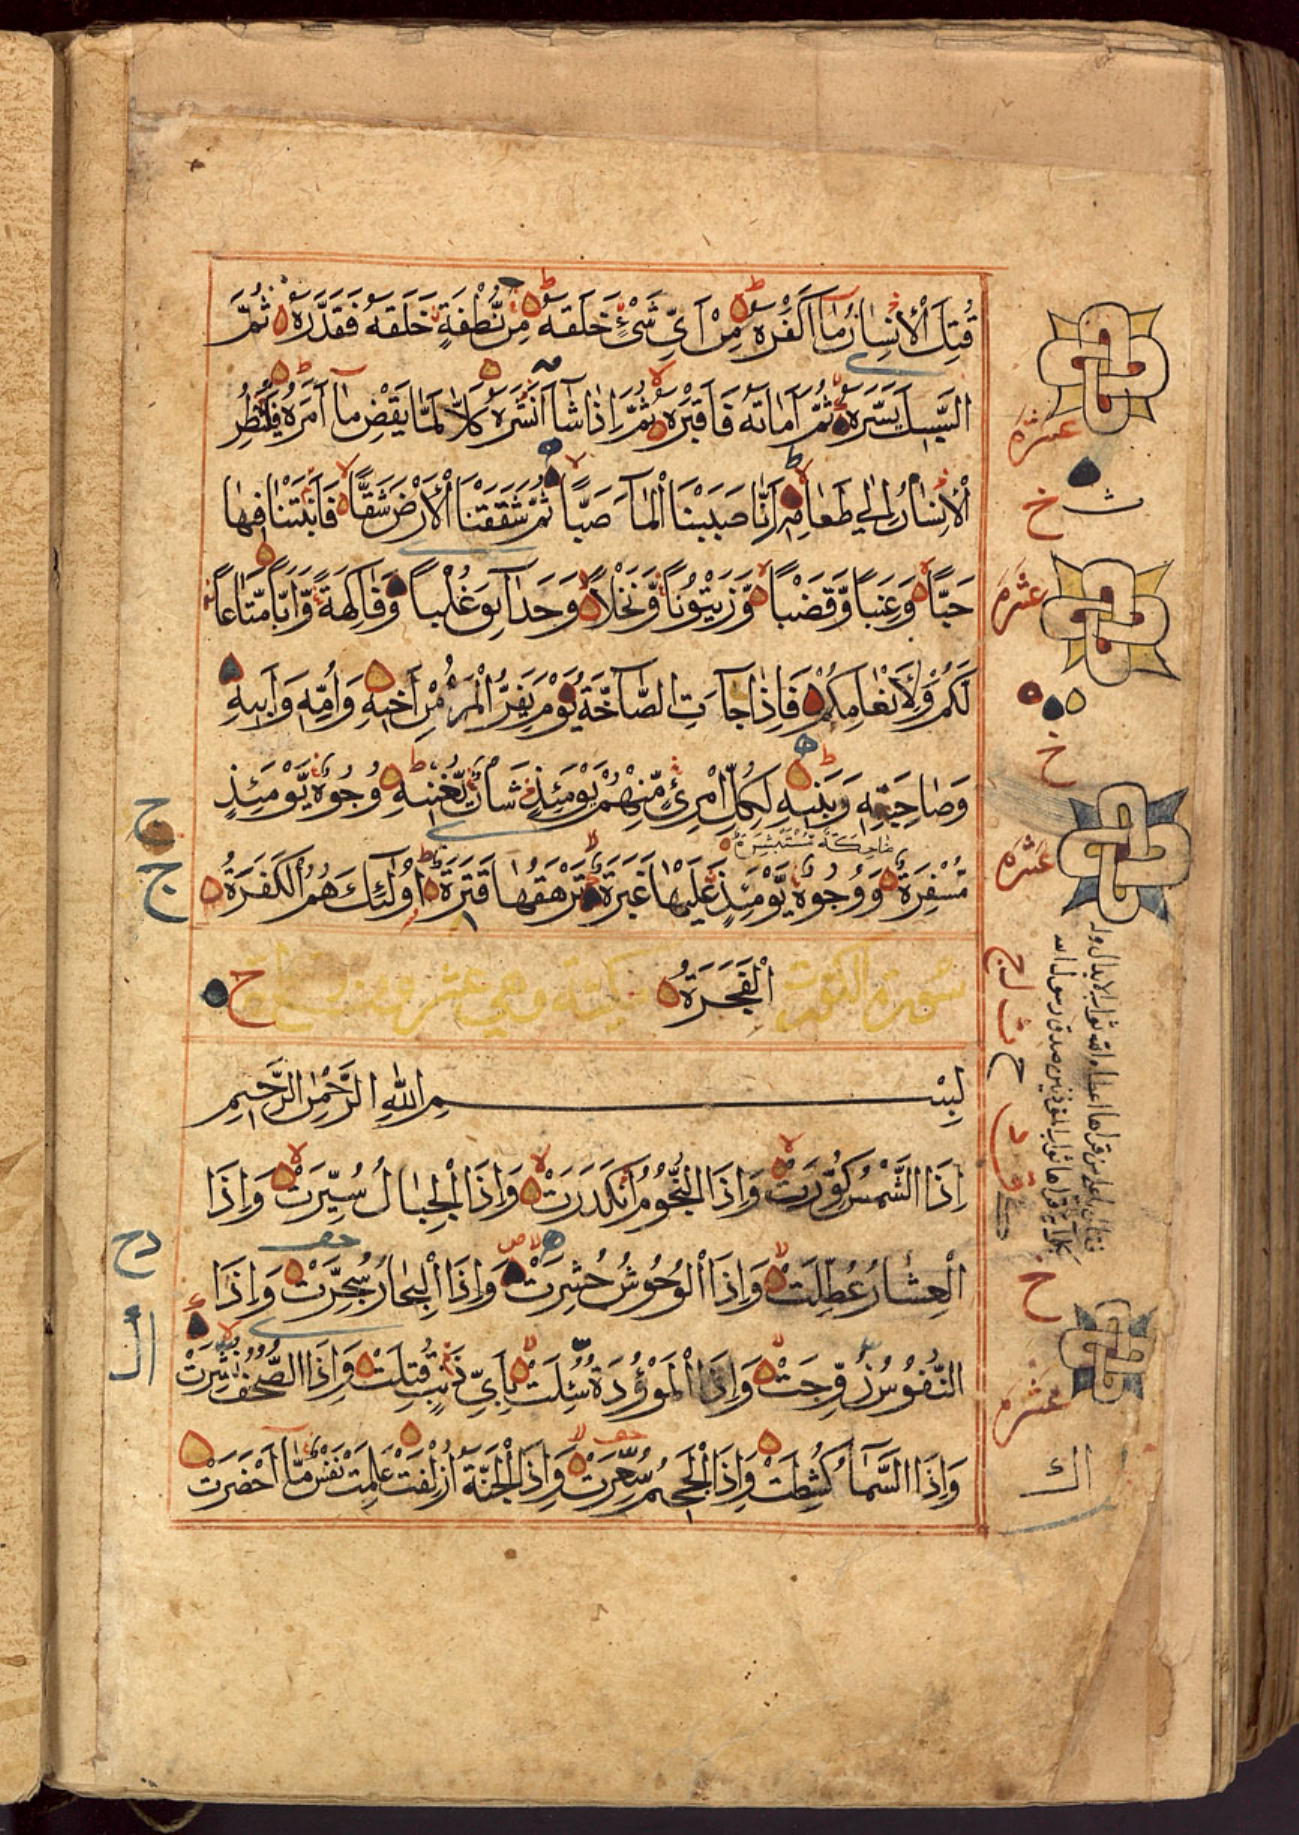 قُتِلَ الْاِنْسَانُ مَا اَكْفَرَهُ مِنْ اَىِّ شَىْءٍ خَلَقَهُ مِنْ نُّطْفَةٍ خَلَقَهُ فَقَدَّرَهُ ثُمَّ
السَّبِيلَ يَسَّرَهُ ثُمَّ اَمَاتَهُ فَاَقْبَرَهُ ثُمَّ اِذَا شَآ اَنْشَرَهُ كَلَّا لَمَّا يَقْضِ مَآ اَمَرَهُ فَلْيَنْظُرِ
الْاِنْسَانُ اِلٰى طَعَامِهِ اَنَّا صَبَبْنَا الْمَآ صَبًّا ثُمَّ شَقَقْنَا الْاَرْضَ شَقًّا فَاَنْبَتْنَا فِيهَا
حَبًّا وَّعِنَبًا وَّقَضْبًا وَّزَيْتُونًا وَّنَخْلًا وَّحَدَآئِقَ غُلْبًا وَّفَاكِهَةً وَّاَبًّا مَّتَاعًا
لَكُمْ وَلِاَنْعَامِكُمْ فَاِذَا جَآءَتِ الصَّآخَّةُ يَوْمَ يَفِرُّ الْمَرْءُ مِنْ اَخِيهِ وَاُمِّهِ وَاَبِيهِ
وَصَاحِبَتِهِ وَبَنِيهِ لِكُلِّ امْرِئٍ مِّنْهُمْ يَوْمَئِذٍ شَاْنٌ يُّغْنِيهِ وُجُوهٌ يَّوْمَئِذٍ
ضَاحِكَةٌ مُّسْتَبْشِرَةٌ
مُّسْفِرَةٌ وَوُجُوهٌ يَّوْمَئِذٍ عَلَيْهَا غَبَرَةٌ تَرْهَقُهَا قَتَرَةٌ اُولٰئِكَ هُمُ الْكَفَرَةُ
سورة التكوير الْفَجَرَةُ مكية وهي عشرون وتسع
بِسْمِ اللّٰهِ الرَّحْمٰنِ الرَّحِيمِ
اِذَا الشَّمْسُ كُوِّرَتْ وَاِذَا النُّجُومُ انْكَدَرَتْ وَاِذَا الْجِبَالُ سُيِّرَتْ وَاِذَا
الْعِشَارُ عُطِّلَتْ وَاِذَا الْوُحُوشُ حُشِرَتْ وَاِذَا الْبِحَارُ سُجِّرَتْ وَاِذَا
النُّفُوسُ زُوِّجَتْ وَاِذَا الْمَوْءُدَةُ سُئِلَتْ بِاَىِّ ذَنْبٍ قُتِلَتْ وَاِذَا الصُّحُفُ نُشِرَتْ
وَاِذَا السَّمَآءُ كُشِطَتْ وَاِذَا الْجَحِيمُ سُعِّرَتْ وَاِذَا الْجَنَّةُ اُزْلِفَتْ عَلِمَتْ نَفْسٌ مَّآ اَحْضَرَتْ
عشره
خ
عشره
خ
عشره
خ
عشره